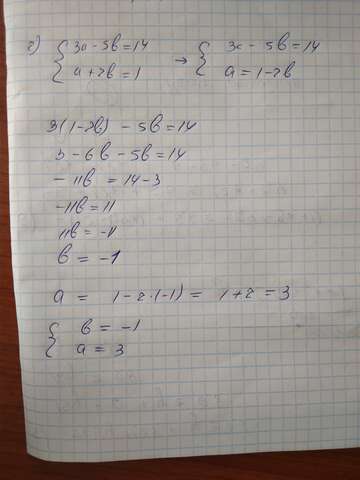 г) { 3a - 5b = 14 → { 3a - 5b = 14
a + 2b = 1 a = 1 - 2b
3(1-2b) - 5b = 14
3 - 6b - 5b = 14
- 11b = 14 - 3
-11b = 11
11b = -11
b = -1
a = 1 - 2·(-1) = 1 + 2 = 3
{ b = -1
a = 3